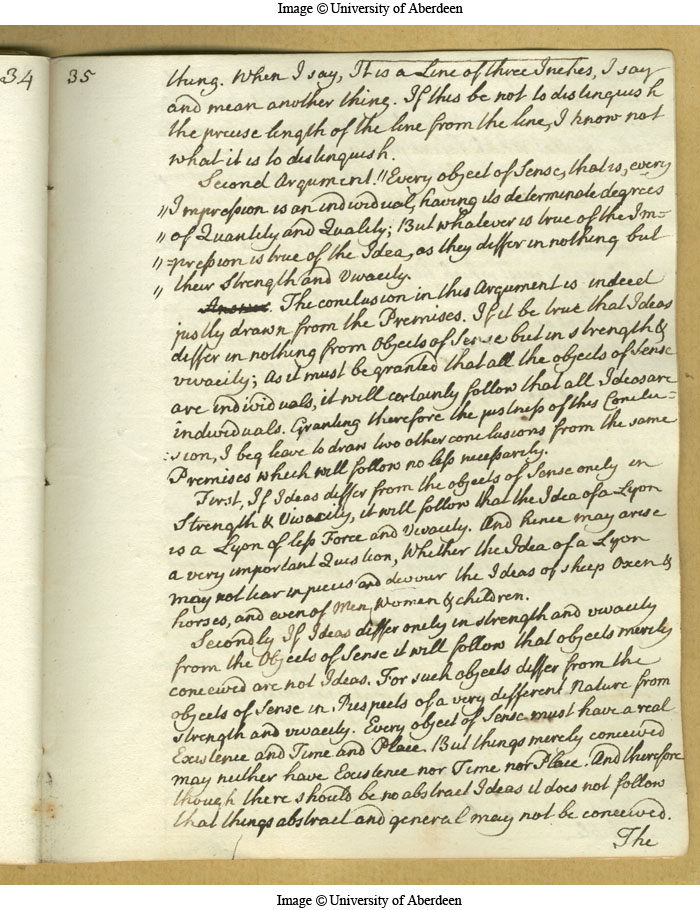 Image © University of Aberdeen
34
35
thing. When I say, It is a Line of three Inches, I say
and mean another thing. If this be not to distinguish
the precise length of the line from the line, I know not
what it is to distinguish.
Second Argument. "Every object of Sense, that is, every
"Impression is an individual, having its determinate degrees
"of Quantity and Quality; But whatever is true of the Im-
"-pression is true of the Idea, as they differ in nothing but
"their Strength and Vivacity.
Answer. The conclusion in this Argument is indeed
justly drawn from the Premises. If it be true that Ideas
differ in nothing from Objects of Sense but in strength &
vivacity; As it must be granted that all the objects of Sense
are individuals, it will certainly follow that all Ideas are
individuals. Granting therefore the justness of this Conclu-
:sion, I beg leave to draw two other conclusions from the same
Premises which will follow no less necessarily.
First, If Ideas differ from the objects of Sense onely in
Strength & Vivacity, it will follow that the Idea of a Lyon
is a Lyon of less Force and Vivacity. And hence may arise
a very important Question, Whether the Idea of a Lyon
may not tear in pieces and devour the Ideas of sheep Oxen &
horses, and even of Men, Women & children.
Secondly If Ideas differ onely in strength and vivacity
from the Objects of Sense it will follow that objects merely
conceived are not Ideas. For such objects differ from the
objects of Sense in Respects of a very different Nature from
strength and vivacity. Every object of Sense must have a real
Existence and Time and Place. But things merely conceived
may neither have Existence nor Time nor Place. And therefore
though there should be no abstract Ideas it does not follow
that things abstract and general may not be conceived.
The
Image © University of Aberdeen